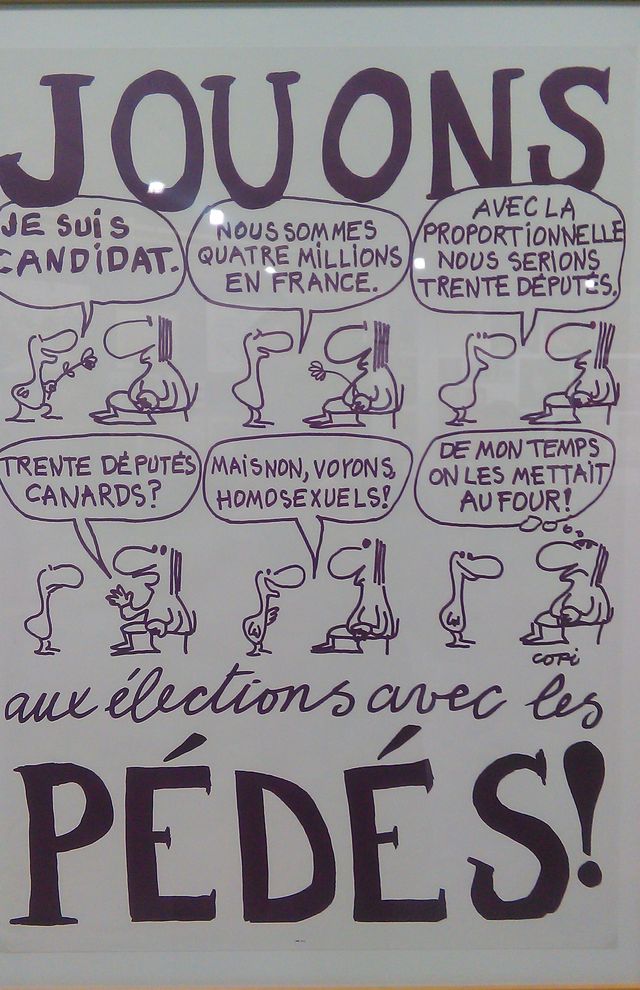 JOUONS
JE SUIS
CANDIDAT.
NOUS SOMMES
QUATRE MILLIONS
EN FRANCE.
AVEC LA
PROPORTIONNELLE
NOUS SERIONS
TRENTE DÉPUTÉS.
TRENTE DÉPUTÉS
CANARDS?
MAIS NON, VOYONS,
HOMOSEXUELS!
DE MON TEMPS
ON LES METTAIT
AU FOUR!
COPI
aux élections avec les
PÉDÉS!